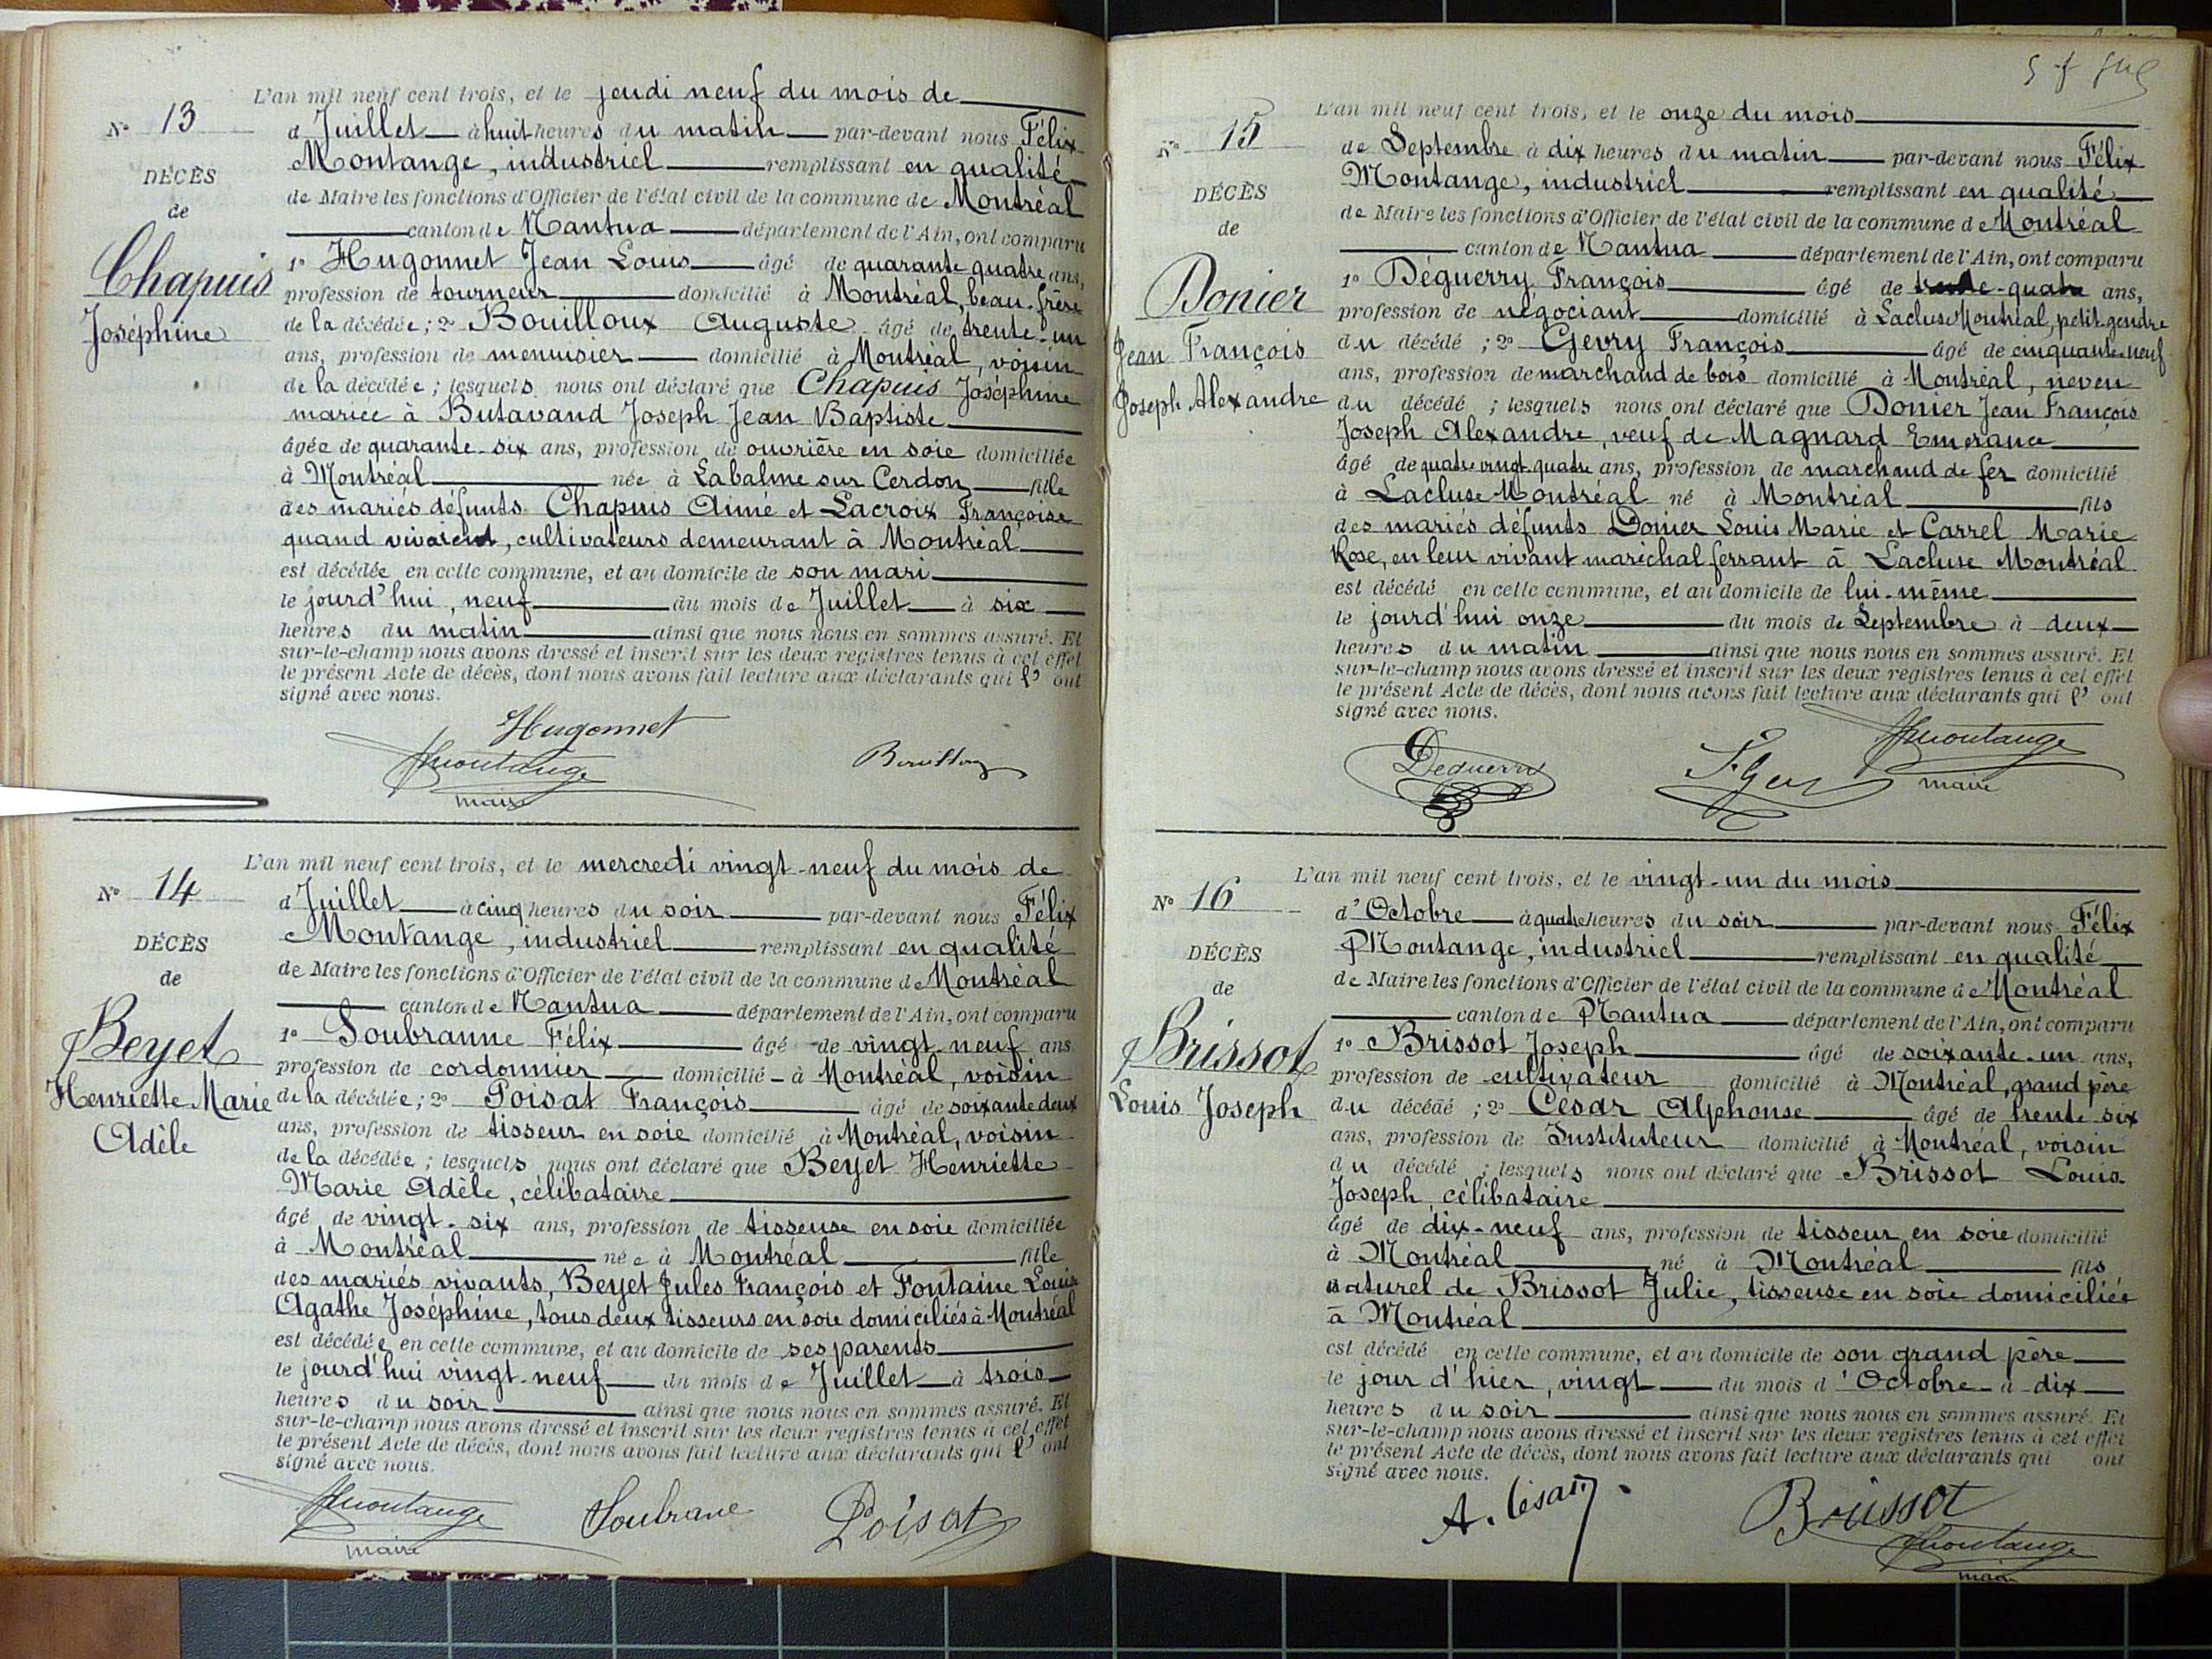 L'an mil neuf cent trois, et le jeudi neuf du mois de
N° 13
d Juillet à huit heures du matin par-devant nous Félix
Montange, industriel remplissant en qualité
DÉCÈS
de Maire les fonctions d'Officier de l'état civil de la commune de Montréal
de
canton de Nantua département de l'Ain, ont comparu
Chapuis
1° Hugonnet Jean Louis âgé de quarante quatre ans,
profession de tourneur domicilié à Montréal, beau-frère
Joséphine
de la décédée; 2° Bouilloux Auguste âgé de trente-un
ans, profession de menuisier domicilié à Montréal, voisin
de la décédée; lesquels nous ont déclaré que Chapuis Joséphine
mariée à Butavand Joseph Jean Baptiste
âgée de quarante-six ans, profession de ouvrière en soie domiciliée
à Montréal née à Labalme sur Cerdon fille
des mariés défunts Chapuis Aimé et Lacroix Françoise
quand vivaient, cultivateurs demeurant à Montréal
est décédée en cette commune, et au domicile de son mari
le jourd'hui, neuf du mois de Juillet à six
heures du matin ainsi que nous nous en sommes assuré. Et
sur-le-champ nous avons dressé et inscrit sur les deux registres tenus à cet effet
le présent Acte de décès, dont nous avons fait lecture aux déclarants qui l' ont
signé avec nous.
Hugonnet
Fmontange
Bouilloux
maire
L'an mil neuf cent trois, et le mercredi vingt-neuf du mois de
N° 14
d Juillet à cinq heures du soir par-devant nous Félix
Montange, industriel remplissant en qualité
DÉCÈS
de Maire les fonctions d'Officier de l'état civil de la commune de Montréal
de
canton de Nantua département de l'Ain, ont comparu
Beyet
1° Soubranne Félix âgé de vingt-neuf ans
profession de cordonnier domicilié à Montréal, voisin
Henriette Marie
de la décédée; 2° Poisat François âgé de soixante deux
Adèle
ans, profession de tisseur en soie domicilié à Montréal, voisin
de la décédée; lesquels nous ont déclaré que Beyet Henriette
Marie Adèle, célibataire
âgé de vingt-six ans, profession de tisseuse en soie domiciliée
à Montréal née à Montréal fille
des mariés vivants, Beyet Jules François et Fontaine Louis
Agathe Joséphine, tous deux tisseurs en soie domiciliés à Montréal
est décédée en cette commune, et au domicile de ses parents
le jourd'hui vingt-neuf du mois de Juillet à trois
heures du soir ainsi que nous nous en sommes assuré. Et
sur-le-champ nous avons dressé et inscrit sur les deux registres tenus à cet effet
le présent Acte de décès, dont nous avons fait lecture aux déclarants qui l' ont
signé avec nous.
Fmontange Soubrane Poisat
maire
L'an mil neuf cent trois, et le onze du mois
N° 15
de Septembre à dix heures du matin par-devant nous Félix
Montange, industriel remplissant en qualité
DÉCÈS
de Maire les fonctions d'Officier de l'état civil de la commune de Montréal
de
canton de Nantua département de l'Ain, ont comparu
Donier
1° Déguerry François âgé de trente-quatre ans,
profession de négociant domicilié à Lacluse Montréal, petit-gendre
Jean François
du décédé; 2° Gevry François âgé de cinquante-neuf
ans, profession de marchand de bois domicilié à Montréal, neveu
Joseph Alexandre
du décédé; lesquels nous ont déclaré que Donier Jean François
Joseph Alexandre, veuf de Magnard Emerance
âgé de quatre vingt-quatre ans, profession de marchand de fer domicilié
à Lacluse Montréal né à Montréal fils
des mariés défunts Donier Louis Marie et Carrel Marie
Rose, en leur vivant maréchal ferrant à Lacluse Montréal.
est décédé en cette commune, et au domicile de lui-même
le jourd'hui onze du mois de Septembre à deux
heures du matin ainsi que nous nous en sommes assuré. Et
sur-le-champ nous avons dressé et inscrit sur les deux registres tenus à cet effet
le présent Acte de décès, dont nous avons fait lecture aux déclarants qui l' ont
signé avec nous.
Deguerry Fmontange
maire
L'an mil neuf cent trois, et le vingt-un du mois
N° 16
d'Octobre à quatre heures du soir par-devant nous Félix
Montange, industriel remplissant en qualité
DÉCÈS
de Maire les fonctions d'Officier de l'état civil de la commune de Montréal
de
canton de Nantua département de l'Ain, ont comparu
Brissot
1° Brissot Joseph âgé de soixante-un ans,
profession de cultivateur domicilié à Montréal, grand père
Louis Joseph
du décédé; 2° César Alphonse âgé de trente six
ans, profession de Instituteur domicilié à Montréal, voisin
du décédé; lesquels nous ont déclaré que Brissot Louis
Joseph, célibataire
âgé de dix-neuf ans, profession de tisseur en soie domicilié
à Montréal né à Montréal fils
naturel de Brissot Julie, tisseuse en soie domiciliée
à Montréal
est décédé en cette commune, et au domicile de son grand père
le jour d'hier, vingt du mois d'Octobre à dix
heures du soir ainsi que nous nous en sommes assuré. Et
sur-le-champ nous avons dressé et inscrit sur les deux registres tenus à cet effet
le présent Acte de décès, dont nous avons fait lecture aux déclarants qui ont
signé avec nous.
A. César Brissot
Fmontange
maire